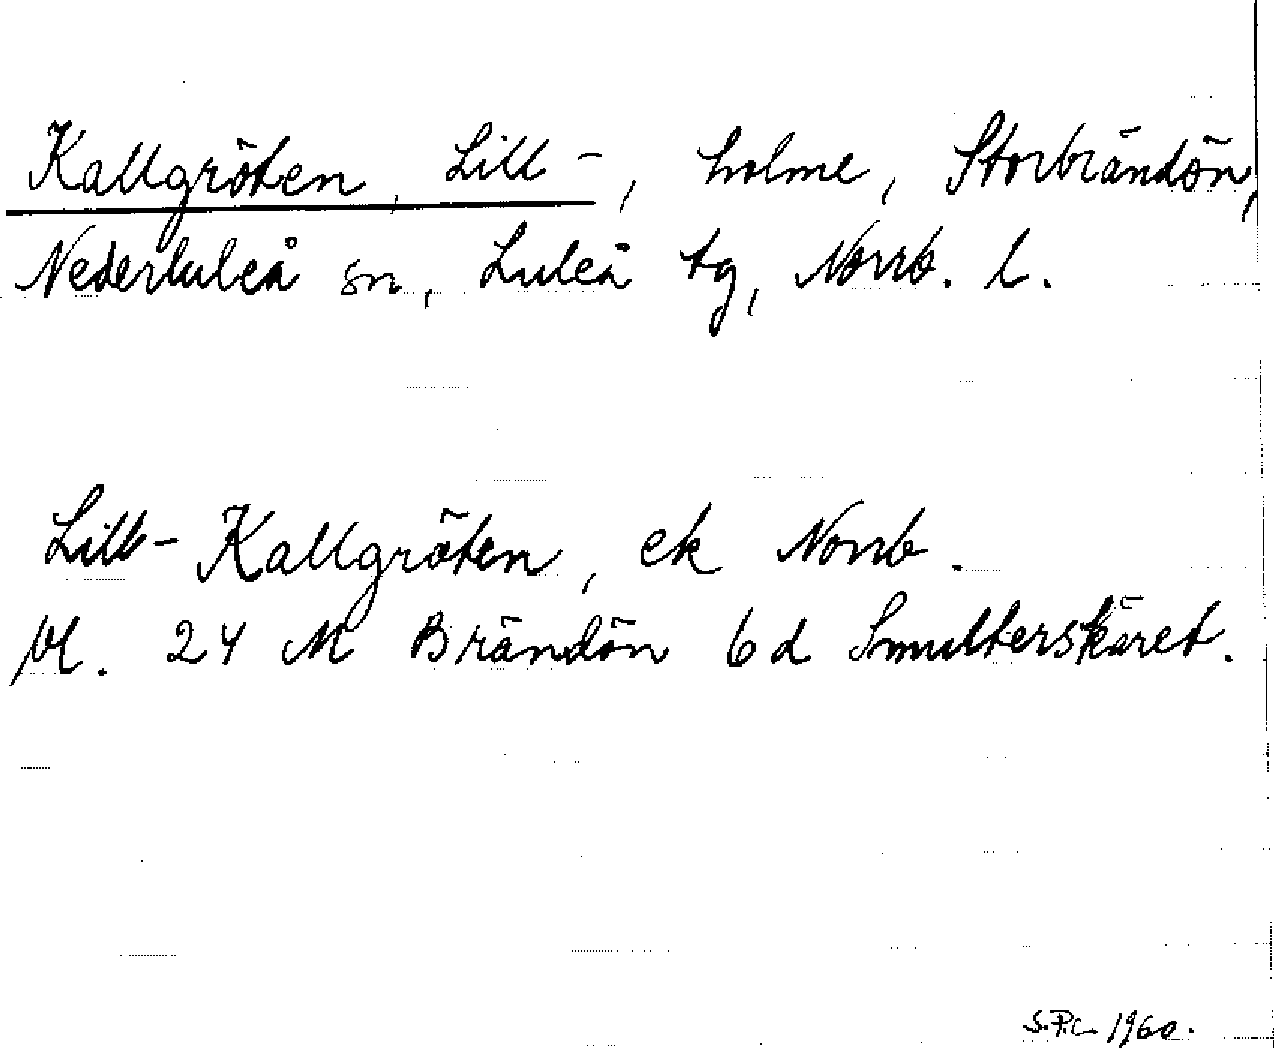 Kallgröten, Lill-, holme, Storbrändön,
Nederluleå sn, Luleå tg, Norrb. l.
Lill-Kallgröten, ek Norrb.
bl. 24 M Brändön 6d Smulterskäret.
1960.